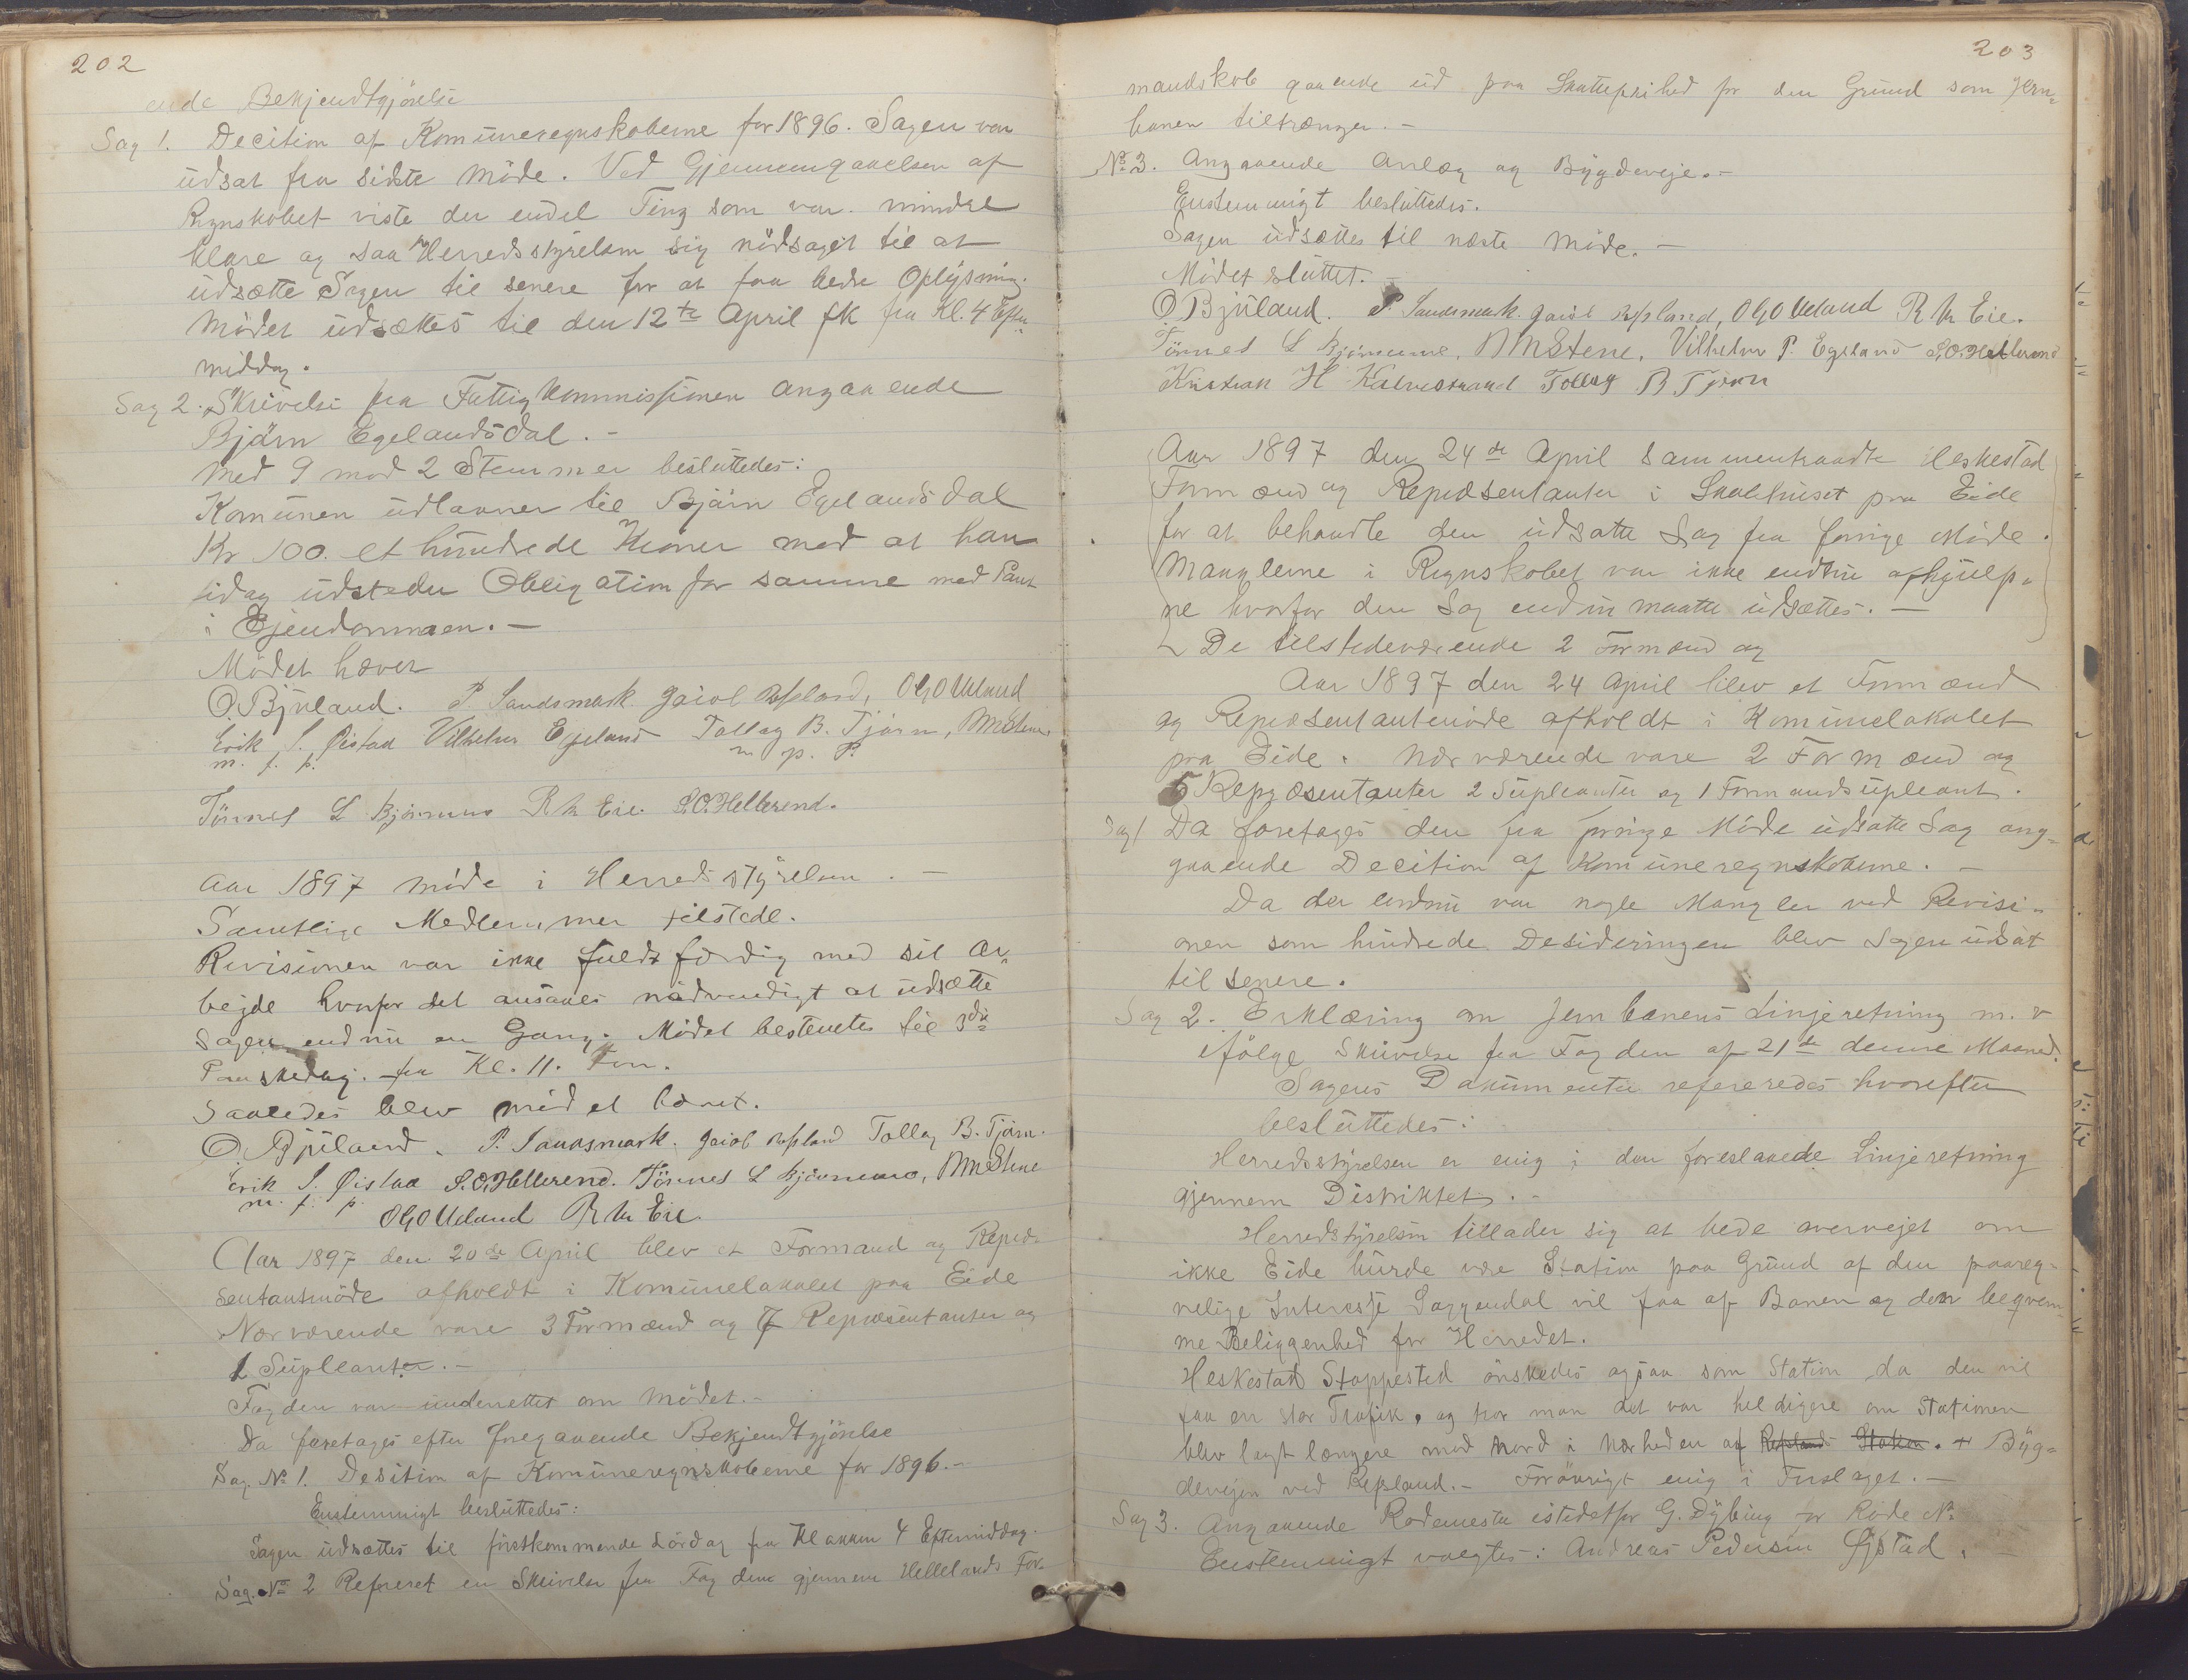 202
ende Bekjendtgjörelse
Sag 1. Decition af Komüneregnskaberne for 1896. Sagen var
üdsat fra sidste Möde. Ved Gjennemgaaelsen af
Regnskabet viste der endel Ting som var mindre
klare og saa Herredsstyrelsen sig nödsaget til at
üdsætte Sagen til senere for at faa bedre Oplysning.
Mödet üdsættes til den 12te April fk fra Kl. 4 Efter-
middag.
Sag 2. Skrivelse fra Fattigkommissionen angaaende
Bjørn Egelandsdal. -
Med 9 mod 2 Stemmer beslüttedes:
Komünen üdlaaner til Bjørn Egelandsdal
Kr 100. et hündrede Kroner mod at han
idag üdsteder Obligation for samme med Pant
i Ejendommen. -
Mödet hævet
O. Bjüland. P. Sandsmark. Jacob Refsland, O G O Ueland
Erik S. Øistad Vilhelm Egeland Tollag B. Tjørn, M M Stene
m. f. p. m. p. P.
Tönnes L Bjørnemo R M Eie. S. O. Hellerend.
Aar 1897 möde i Herredsstyrelsen. -
Samtlige Medlemmer tilstede.
Revisionen var ikke füldt færdig med sit Ar-
bejde hvorfor det ansaaes nødvendigt at üdsætte
Sagen endnü en Gang. Mödet bestemtes til 3die
Paaskedag. fra Kl. 11. For.
Saaledes blev mödet hævet.
O. Bjüland. P. Sandsmark. Jacob Refsland Tollag B. Tjørn.
Erik S. Øistad S. O. Hellerend. Tönnes L Bjørnemo, M M Stene
m. f. p. O G O Ueland R M Eie
Aar 1897 den 20de April blev et Formand og Repræ-
sentantmöde afholdt i Komünelokalet paa Eide
Nærværende vare 3 Formænd og 7 Repræsentanter og
1 Süpleant. -
Fogden var ünderrettet om Mödet. -
Da foretages efter foregaaende Bekjendtgjörelse
Sag. No 1. Desition af Komüneregnskaberne for 1896. -
Enstemmigt beslüttedes:
Sagen üdsættes til förstkommende Lördag fra Klokken 4 Eftermiddag.
Sag. No 2 Refereret en Skrivelse fra Fogden gjennem Hellelands For-
203
mandskab gaaende üd paa Skattefrihed for den Gründ som Jern-
banen tiltrænger. -
No 3. Angaaende Anlæg og Bygdeveje. -
Enstemmigt beslüttedes.
Sagen üdsættes til næste Möde. -
Mödet slüttet. -
O Bjüland. P. Sandsmark. Jacob Refsland, O G O Ueland R M Eie.
Tönnes L Bjørnemo, M M Stene. Vilhelm P. Egeland S. O. Hellerend
Kristian H Kalvestrand Tollag B Tjørn
Aar 1897 den 24de April sammentraadte Heskestad
Formænd og Repræsentanter i Skolehüset paa Eide
for at behandle den üdsatte Sag fra forrige Möde.
Manglerne i Regnskabet var ikke endnü afhjulp-
ne hvorfor den Sag endnü maatte üdsættes. -
De tilstedeværende 2 Formænd og
Aar 1897 den 24 April blev et Formænd
og Repræsentantmöde afholdt i Komünelokalet
paa Eide. Nærværende vare 2 Formænd og
5 Repræsentanter 2 Süpleanter og 1 Formandsüpleant.
Sag 1 Da foretages den fra forrige Möde üdsatte Sag ang-
gaaende Decition af Komüneregnskaberne. -
Da der endnü var nogle Mangler ved Revisi-
onen som hindrede Desideringen blev Sagen üdsat
til senere.
Sag 2. Erklæring om Jernbanens Linjeretning m. v
ifölge Skrivelse fra Fogden af 21de denne Maaned.
Sagens Dokümenter refereredes hvorefter
beslüttedes:
Herredsstyrelsen er enig i den foreslaaede Linjeretning
gjennem Distriktet. -
Herredstyrelsen tillader sig at bede overvejet om
ikke Eide bürde være Station paa Gründ af den paareg-
nelige Interesse Saggendal vil faa af Banen og den beqvem-
me Beliggenhed for Herredet.
Heskestad Stoppested önskedes ogsaa som Station da den vil
faa en stor Trafik, og tror man det var heldigere om Stationen
blev lagt længere mod Nord i Nærheden af Refslands Station. + Byg-
devejen ved Refsland. - Forövrigt enig i Forslaget. -
Sag 3. Angaaende Rodemester istedetfor G. Dybing for Rode No
Enstemmigt valgtes: Andreas Pedersen Øjstad. -